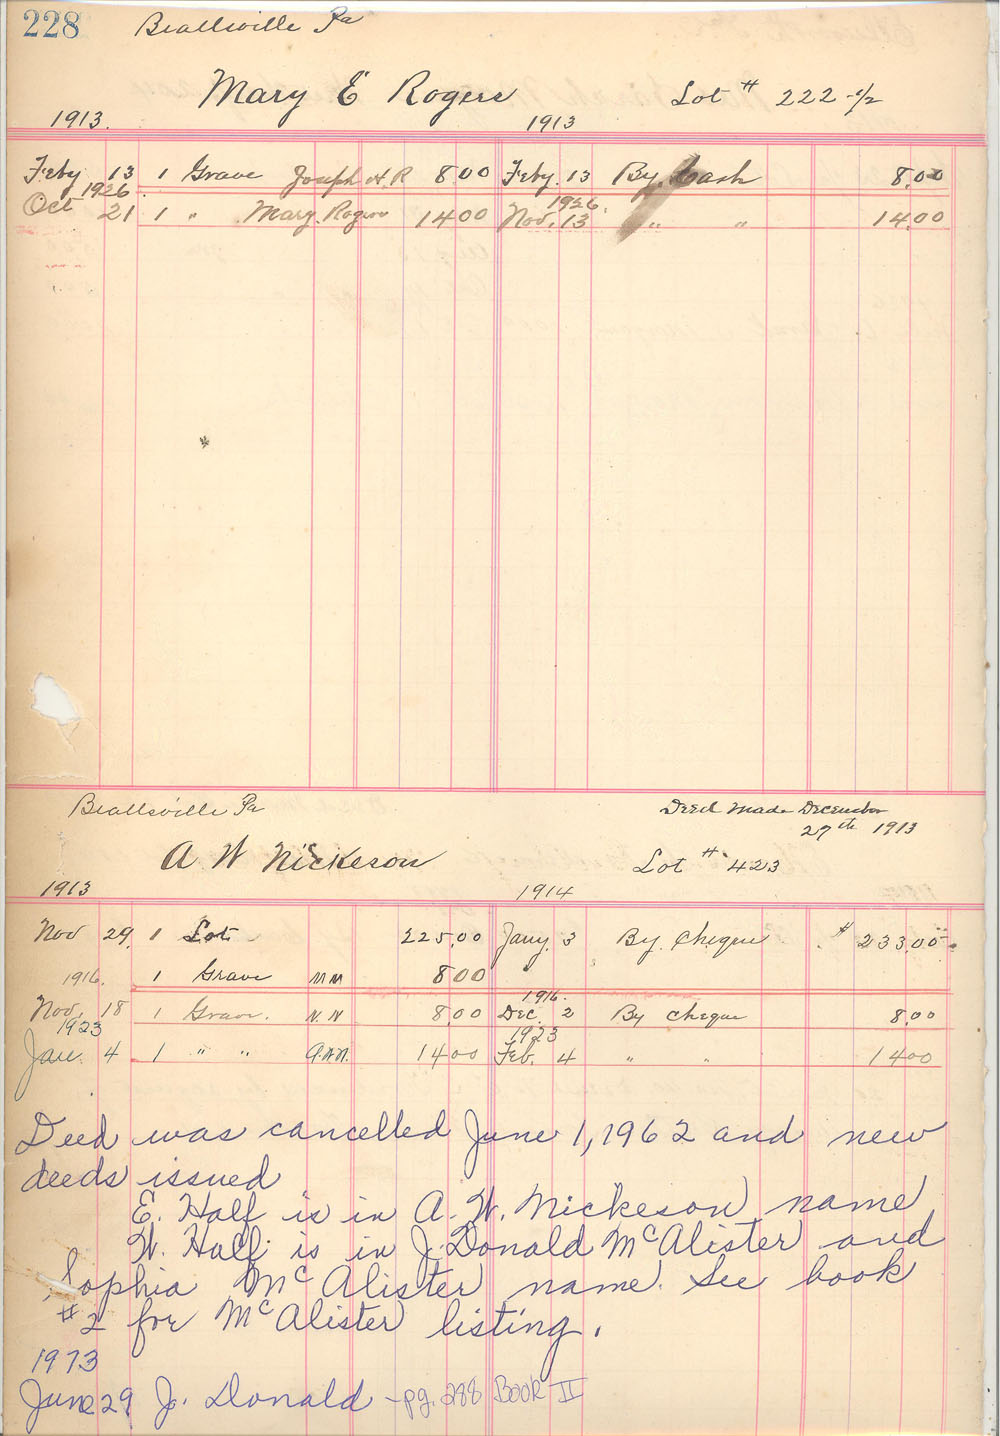 228 Beallsville Pa
Mary E Rogers Lot # 222-1/2
1913. 1913
Feby 13 1 Grave Joseph H. R 8.00 Feby. 13 By Cash 8.00
1926 1926.
Oct 21 1 " Mary Rogers 14 00 Nov. 13 " " 14.00
Beallsville Pa Deed Made December
27th 1913
A W Nickeson Lot # 423
1913 1914
Nov 29 1 Lot 225.00 Jany. 3 By Cheque $ 233.00
1916. 1 Grave M M 8 00
1916.
Nov. 18 1 Grave. N. N 8.00 Dec. 2 By Cheque 8.00
1923 1923
Jan. 4 1 " " A.W.N. 14 00 Feb. 4 " " 14 00
Deed was cancelled June 1, 1962 and new
deeds issued
E. Half is in A. W. Nickeson name
W. Half is in J. Donald McAlister and
Sophia McAlister name. See book
#2 for McAlister listing.
1973
June 29 J. Donald - pg. 288 BOOK II